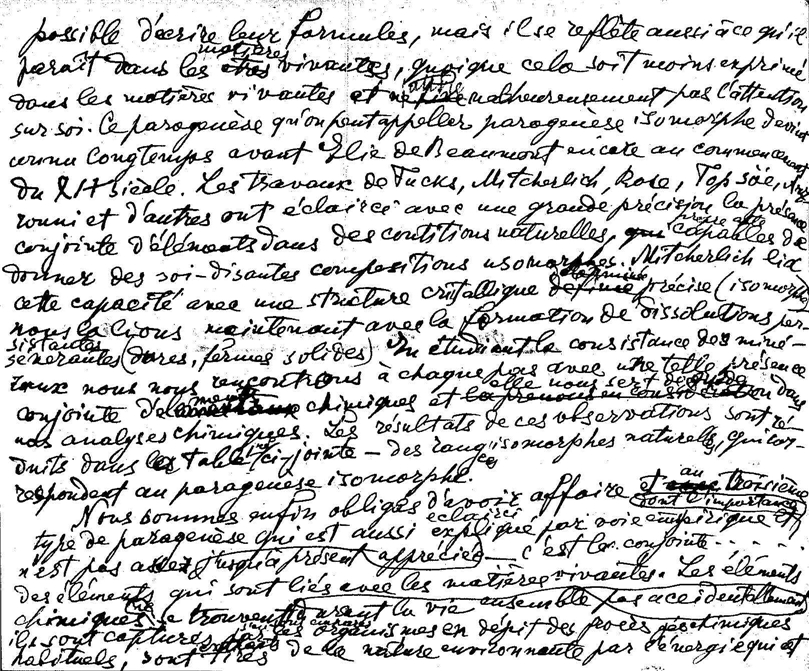 possible d'écrire leur formules, mais il se reflète aussi à ce qu'il
matières
parait dans les êtres vivantes, quoique cela soit moins exprimé
dans les matières vivantes et ne malheureusement pas l'attention
sur soi. Ce paragenèse qu'on peut appeller paragenèse isomorphe devint
connu longtemps avant Elie de Beaumont encore au commencement
du XIX siècle. Les travaux de Fucks, Mitcherlich, Rose, Topsöe,
rouni et d'autres ont éclairci avec une grande précision la présence
conjointe d'éléments dans des contitions naturelles, capables de
donner des soi-disantes compositions isomorphes. Mitcherlich lia
cette capacité avec une structure cristallique définie précise (isomorphe
nous la lions maintenant avec la formation de dissolutions per-
sistantes
(dures, fermes solides) En étudiant la consistance des miné-
raux nous nous rencontrons à chaque pas avec une telle présence
elle nous sert de guide
conjointe de chimiques et la prenons en considération dans
nos analyses chimiques. Les résultats de ces observations sont ré-
duits dans les table ci-jointe - des rangs isomorphes naturelles, qui cor-
respondent au paragenèse isomorphe.
Nous sommes enfin obligés d'avoir affaire et au troisième
éclairci dont l'importance
type de paragenèse qui est aussi expliqué par voie empirique et
n'est pas assez jusqu'à présent apprécié - c'est la conjointe - . . . .
des éléments qui sont liés avec les matières vivantes. Les éléments
chimiques ne se trouvent durant la vie ensemble pas accidentellement
ils sont capturés par les organismes en dépit des procès géochimiques
habituels, sont tirés de la nature environnante par l'énergie qui est